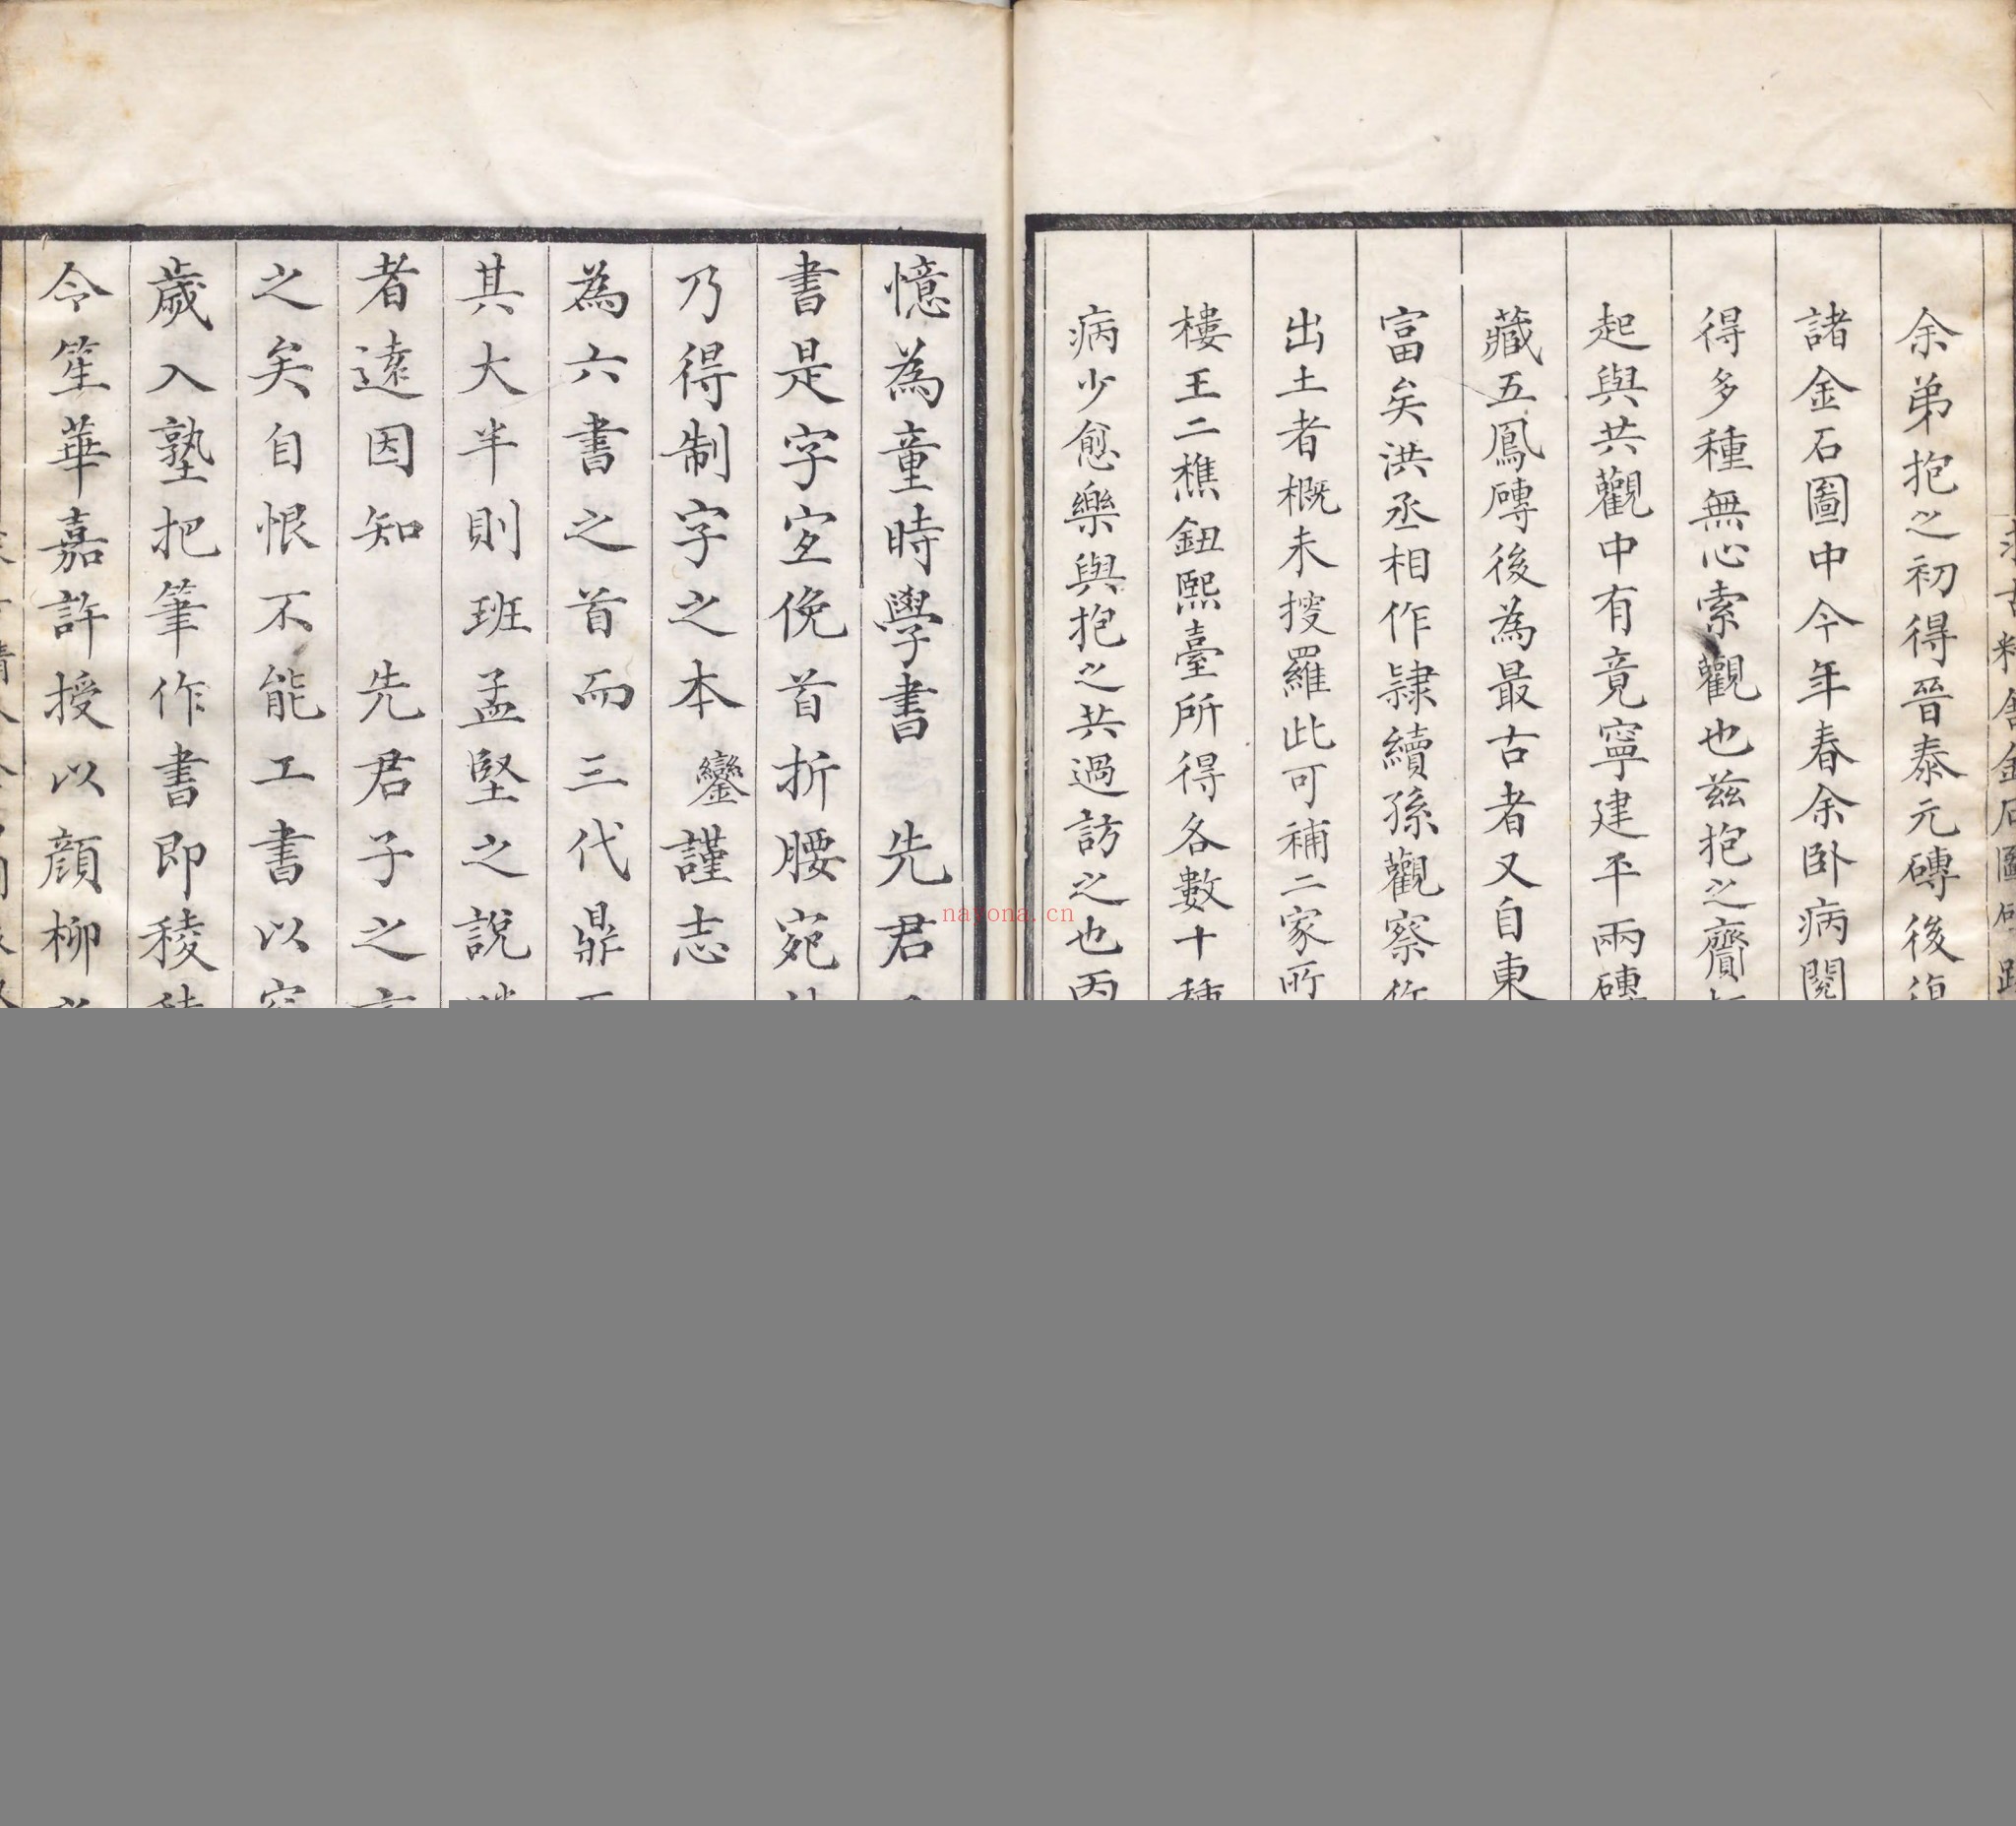 余弟抱之初得晉泰元磚後復
諸金石圖中今年春余卧病閱
得多種無心索觀也茲抱之齎
起與共觀中有竟寧建平兩磚
藏五鳳磚後為最古者又自東
富矣洪丞相作隸續孫觀察作
出土者概未搜羅此可補二家所
樓王二樵鈕熙臺所得各數十種
病少愈樂與抱之共過訪之也丙
憶為童時學書 先君
書是字宜俛首折腰宛
乃得制字之本鑾謹志
為六書之首而三代鼎
其大半則班孟堅之說
者遠因知 先君子之言
之矣自恨不能工書以
歲入塾把筆作書即稜稜
令笙華嘉許授以顔柳
nayona.cn